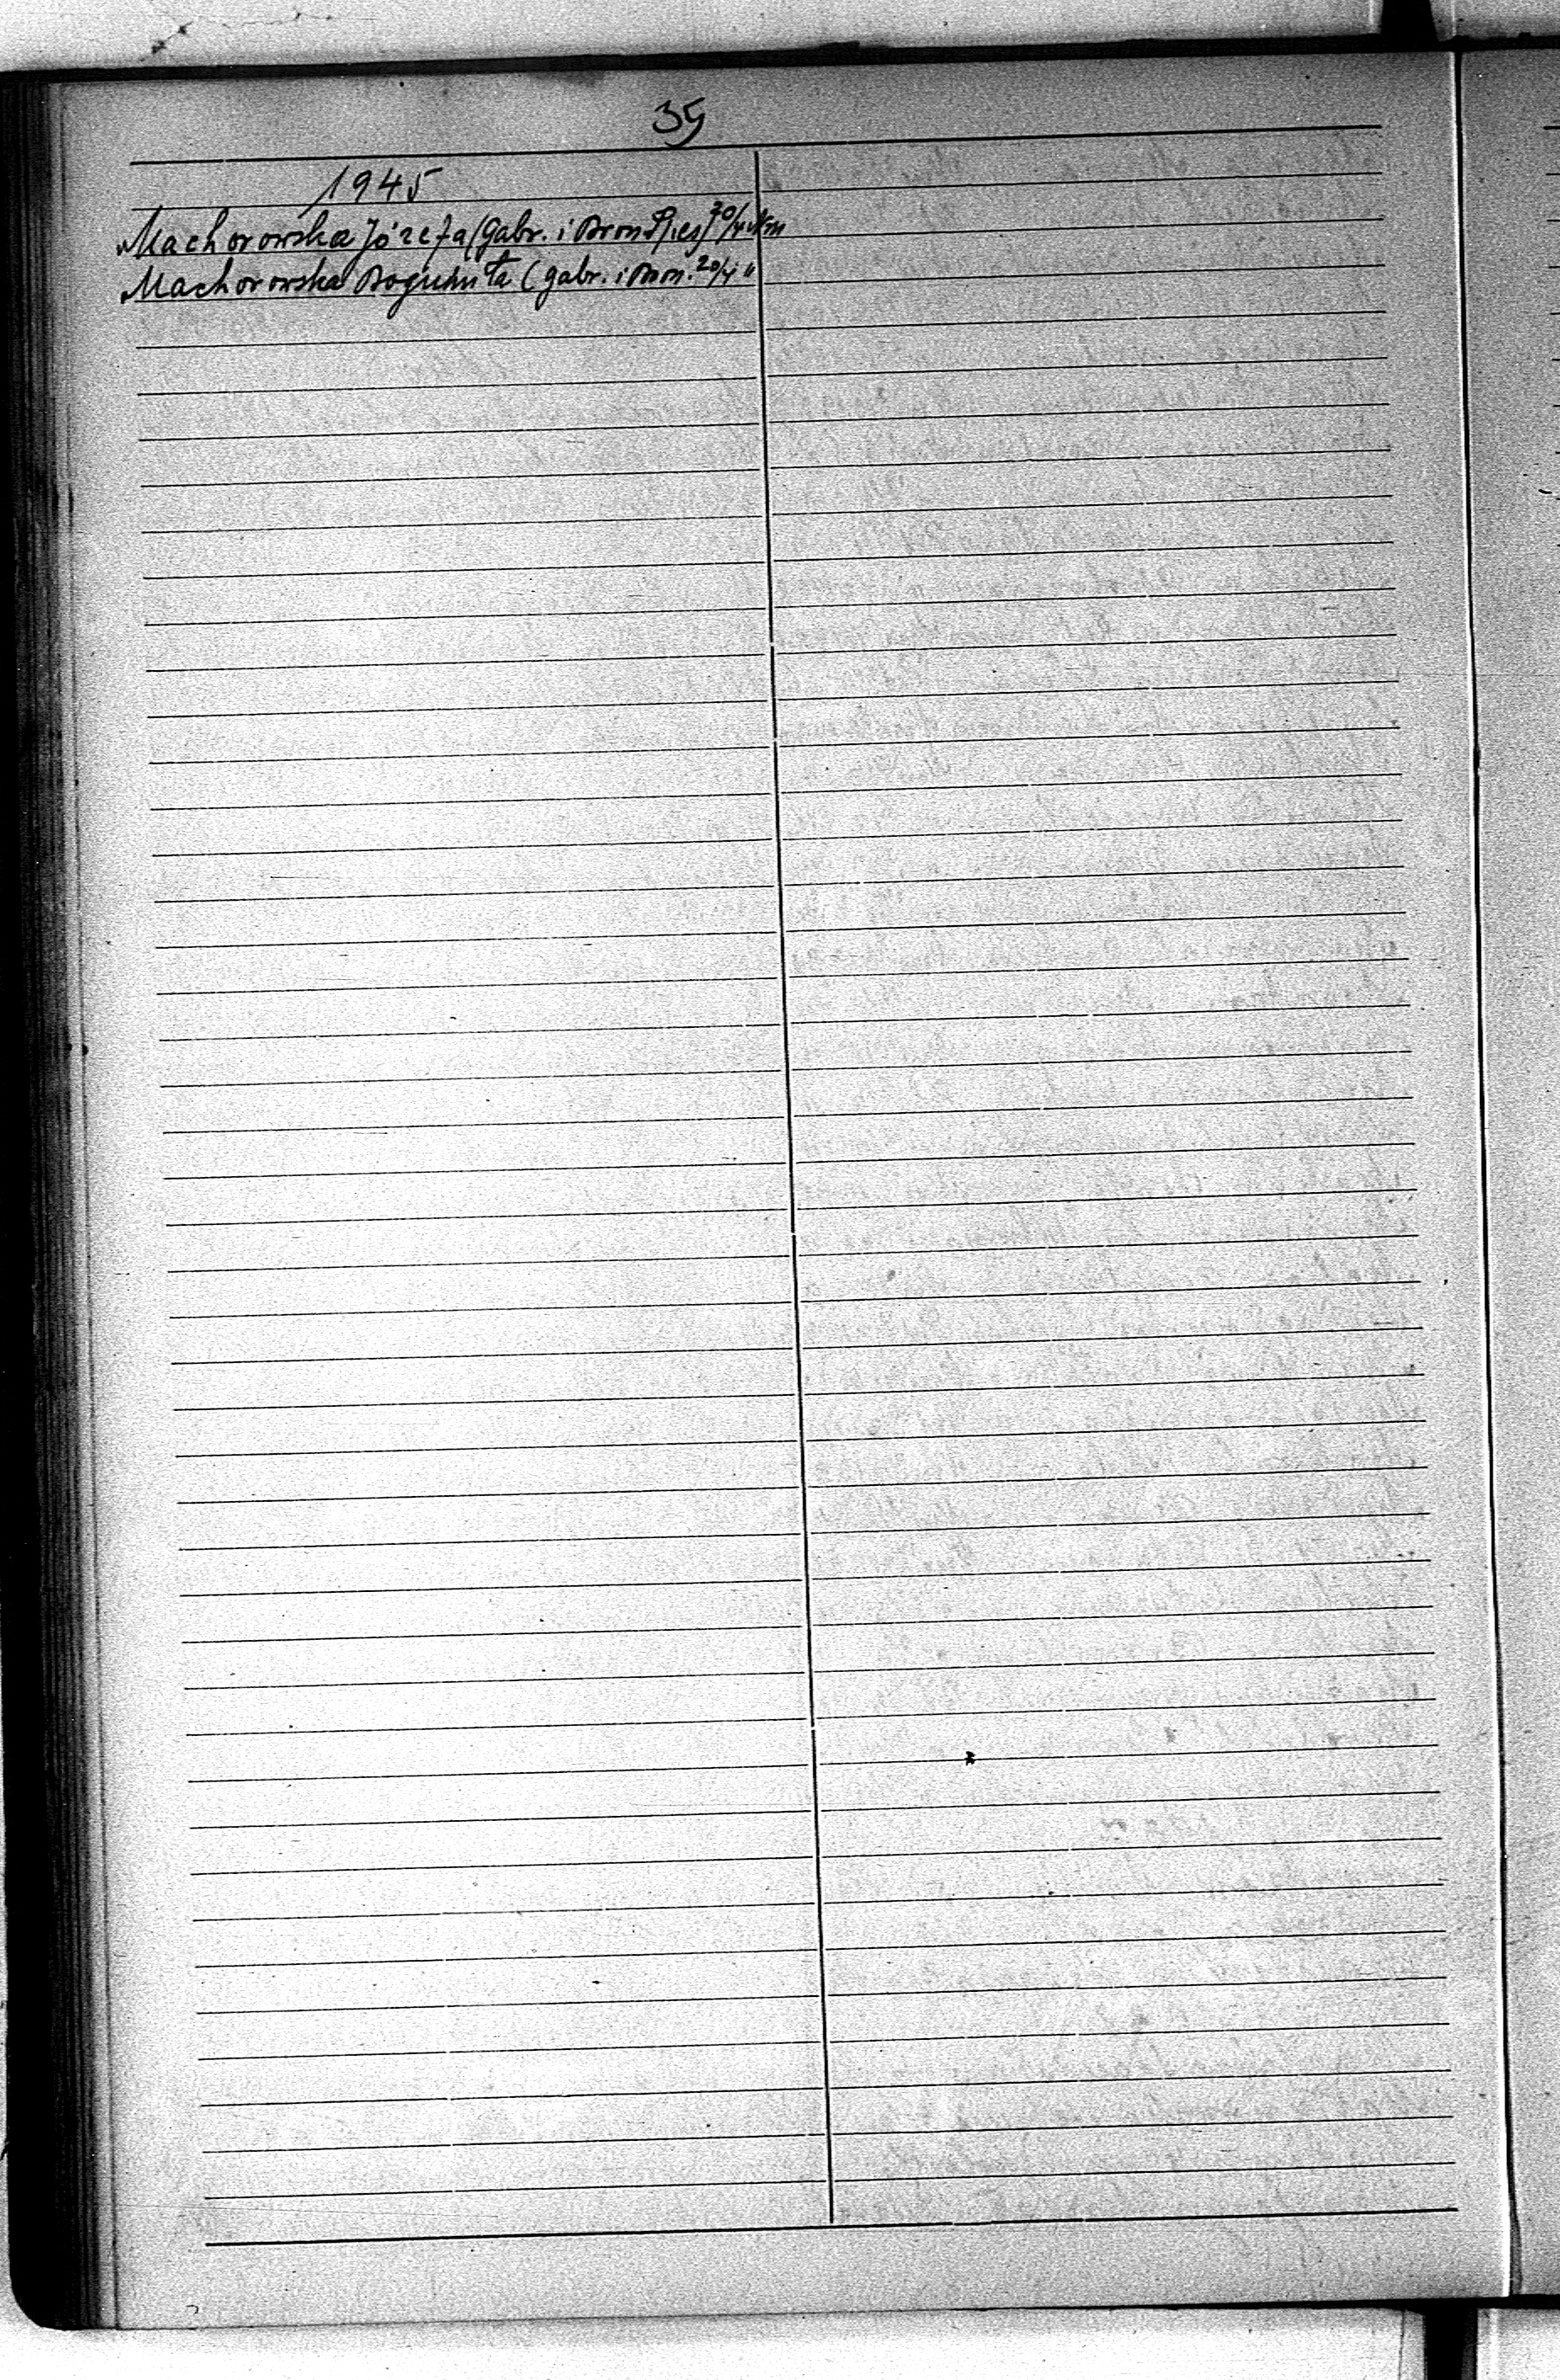 35
1945
Machorowska Józefa (Gabr. i Bron. 20/4
Machorowska Bogumiła (Gabr. i Bron. 20/4 "